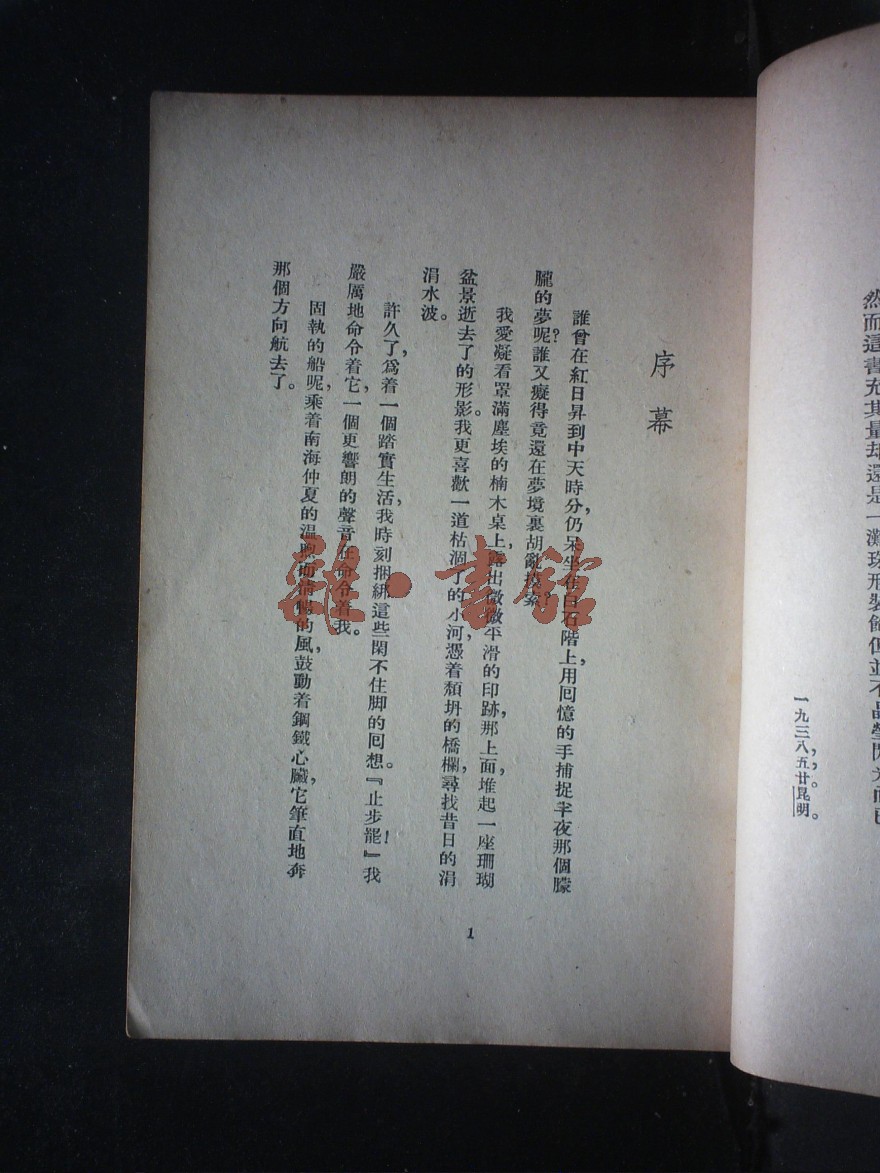 然而這書充其量却還是一灘珠形裝飾但並不晶瑩閃光而已
一九三八，五，廿。昆明。
序幕
誰曾在紅日昇到中天時分，仍呆坐在白石階上，用囘憶的手捕捉半夜那個朦
朧的夢呢？誰又癡得竟還在夢境裏胡亂摸索？
我愛凝看罩滿塵埃的楠木桌上，露出微微平滑的印跡，那上面堆起一座珊瑚
盆景逝去了的形影。我更喜歡一道枯涸了的小河，憑着頹坍的橋欄，尋找昔日的涓
涓水波。
許久了，爲着一個踏實生活，我時刻捆綁這些閑不住脚的囘想。『止步罷！』我
嚴厲地命令着它，一個更響朗的聲音在命令着我。
固執的船呢，乘着南海仲夏的温煦而清暢的風，鼓動着鋼鐵心臟，它筆直地奔
那個方向航去了。
1
雜·書館